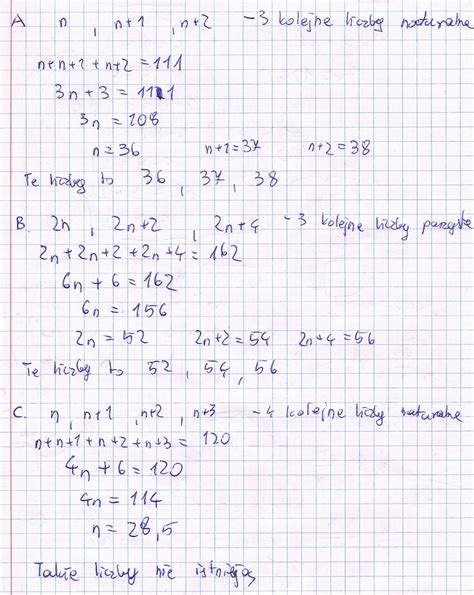 A n , n+1 , n+2 – 3 kolejne liczby naturalne
n+n+1+n+2 = 111
3n+3 = 111
3n = 108
n = 36 n+1 = 37 n+2 = 38
Te liczby to 36 , 37 , 38
B. 2n , 2n+2 , 2n+4 – 3 kolejne liczby parzyste
2n+2n+2+2n+4 = 162
6n+6 = 162
6n = 156
2n = 52 2n+2 = 54 2n+4 = 56
Te liczby to 52 , 54 , 56
C. n , n+1 , n+2 , n+3 – 4 kolejne liczby naturalne
n+n+1+n+2+n+3 = 120
4n+6 = 120
4n = 114
n = 28,5
Takie liczby nie istnieją